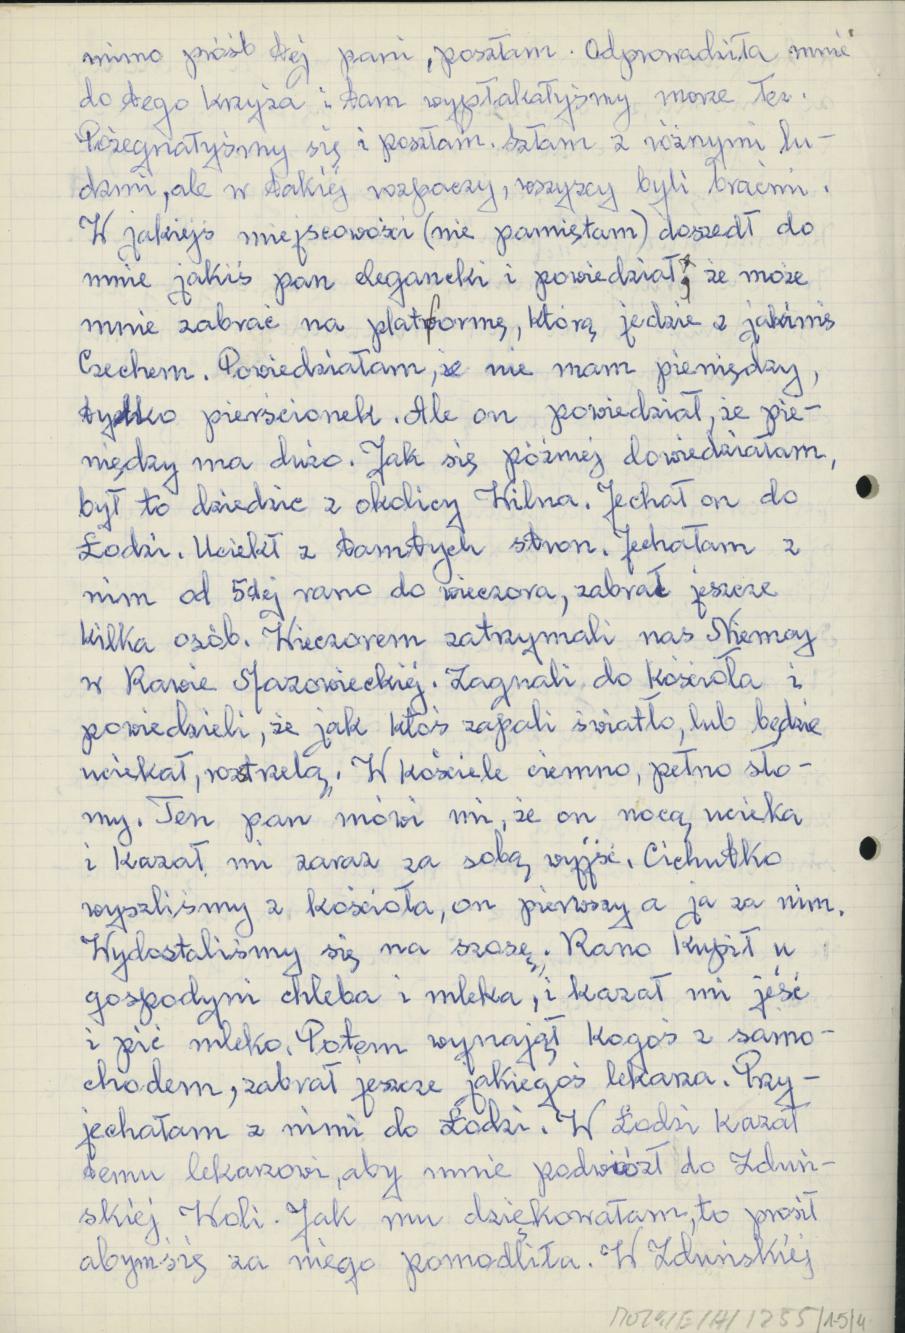 mimo próśb tej pani, poszłam. Odprowadziła mnie
do tego krzyża i tam wypłakałyśmy morze łez.
Pożegnałyśmy się i poszłam. Szłam z różnymi lu-
dźmi, ale w takiej rozpaczy, wszyscy byli braćmi.
W jakiejś miejscowości (nie pamiętam) doszedł do
mnie jakiś pan elegancki i powiedział, że może
mnie zabrać na platformę, którą jedzie z jakimś
Czechem. Powiedziałam, że nie mam pieniędzy,
tylko pierścionek. Ale on powiedział, że pie-
niędzy ma dużo. Jak się później dowiedziałam,
był to dziedzic z okolicy Wilna. Jechał on do
Łodzi. Uciekł z tamtych stron. Jechałam z
nim od 5tej rano do wieczora, zabrał jeszcze
kilka osób. Wieczorem zatrzymali nas Niemcy
w Rawie Mazowieckiej. Zagnali do kościoła i
powiedzieli, że jak ktoś zapali światło, lub będzie
uciekał, rozstrzelą. W kościele ciemno, pełno sło-
my. Ten pan mówi mi, że on nocą ucieka
i kazał mi zaraz za sobą wyjść. Cichutko
wyszliśmy z kościoła, on pierwszy a ja za nim.
Wydostaliśmy się na szosę. Rano kupił u
gospodyni chleba i mleka, i kazał mi jeść
i pić mleko. Potem wynajął kogoś z samo-
chodem, zabrał jeszcze jakiegoś lekarza. Przy-
jechałam z nimi do Łodzi. W Łodzi kazał
temu lekarzowi, aby mnie podwiózł do Zduń-
skiej Woli. Jak mu dziękowałam, to prosił
abym się za niego pomodliła. W Zduńskiej